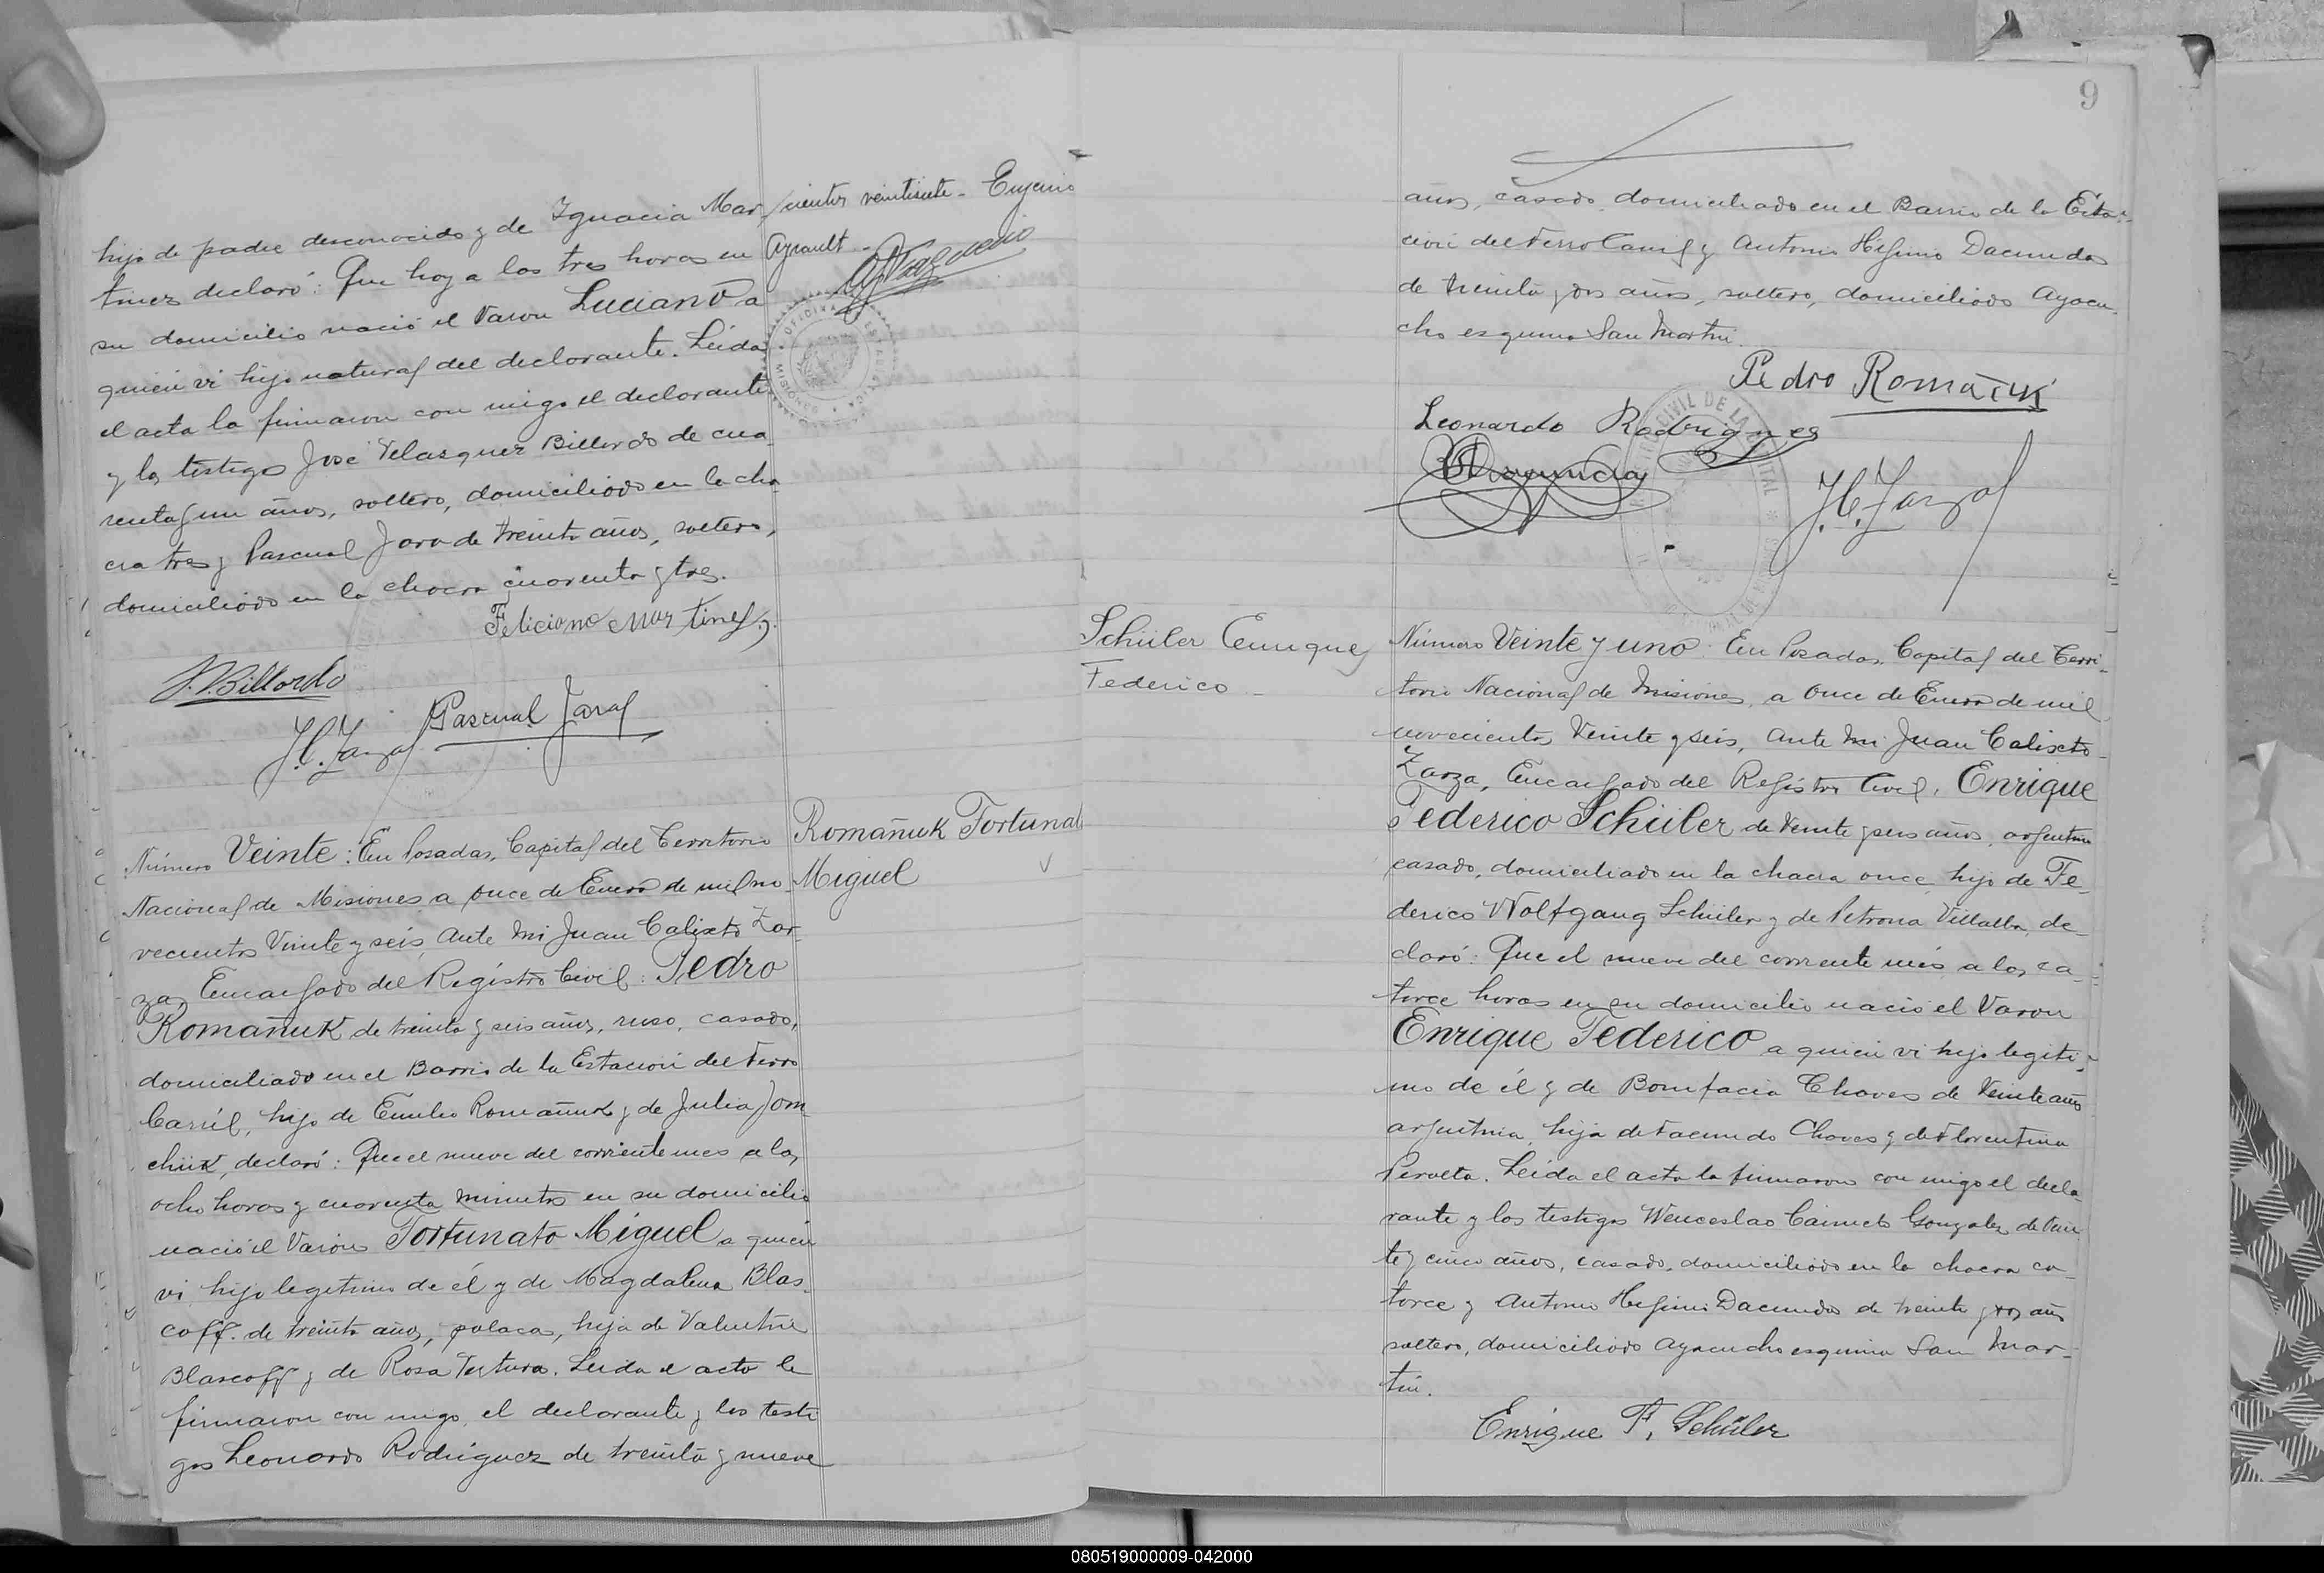 hijo de padre desconocido y de Ignacia Mar-
tinez declaró: Que hoy a las tres horas en
su domicilio nació el Varon Luciano a
quien vi hijo natural del declarante. Leida
el acta la firmaron con migo el declarante
y los testigos José Velasquez Billordo de cua-
renta y un años, soltero, domiciliado en la cha-
cra tres y Pascual Jara de treinta años, soltero,
domiciliado en la chacra cuarenta y tres.
Feliciano Martinez
J. V. Billordo
Pascual Jara
J. C. Zarza
cientos veintisiete - Eugenio
Ayrault -
Número Veinte: En Posadas, Capital del Territorio
Nacional de Misiones a once de Enero de mil no-
vecientos Veinte y seis, Ante Mi Juan Calixto Zar-
za, Encargado del Registro Civil: Pedro
Romañuk de treinta y seis años, ruso, casado,
domiciliado en el Barrio de la Estación del Ferro
Carril, hijo de Emilio Romañuk y de Julia Jom-
chuk, declaró: Que el nueve del corriente mes a las
ocho horas y cuarenta minutos en su domicilio
nació el Varón Fortunato Miguel a quien
vi hijo legitimo de él y de Magdalena Blas-
coff de treinta años, polaca, hija de Valentin
Blascoff y de Rosa. Leida el acta la
firmaron con migo el declarante y los testi
gos Leonardo Rodriguez de treinta y nueve
Romañuk Fortunat
Miguel
9
años, casado, domiciliado en el Barrio de la Esta-
ción del Ferro Carril y Antonio Higinio Dacunda
de treinta y dos años, soltero, domiciliado Ayacu-
cho esquina San Martin.
Pedro Romañuk
Leonardo Rodrigues
J. C. Zarza
Schüler Enrique
Federico -
Número Veinte y uno: En Posadas, Capital del Terri-
torio Nacional de Misiones, a once de Enero de mil
novecientos Veinte y seis, Ante Mi Juan Calixto
Zarza, Encargado del Registro Civil, Enrique
Federico Schüler de Veinte y seis años, argentino
casado, domiciliado en la chacra once, hijo de Fe-
derico Wolfgang Schüler y de Petrona Villalba, de-
claró: Que el nueve del corriente mes a las ca-
torce horas en su domicilio nació el Varon
Enrique Federico a quien vi hijo legiti-
mo de él y de Bonifacia Chaves de Veinte años
argentina, hija de Facundo Chaves y de Florentina
Peralta. Leida el acta la firmaron con migo el decla
rante y los testigos Wenceslao Gonzalez de Vein
te y cinco años, casado, domiciliado en la chacra ca-
torce y Antonio Higinio Dacunda de treinta y dos años
soltero, domiciliado Ayacucho esquina San Mar-
tin.
Enrique F. Schüler
080519000009-042000